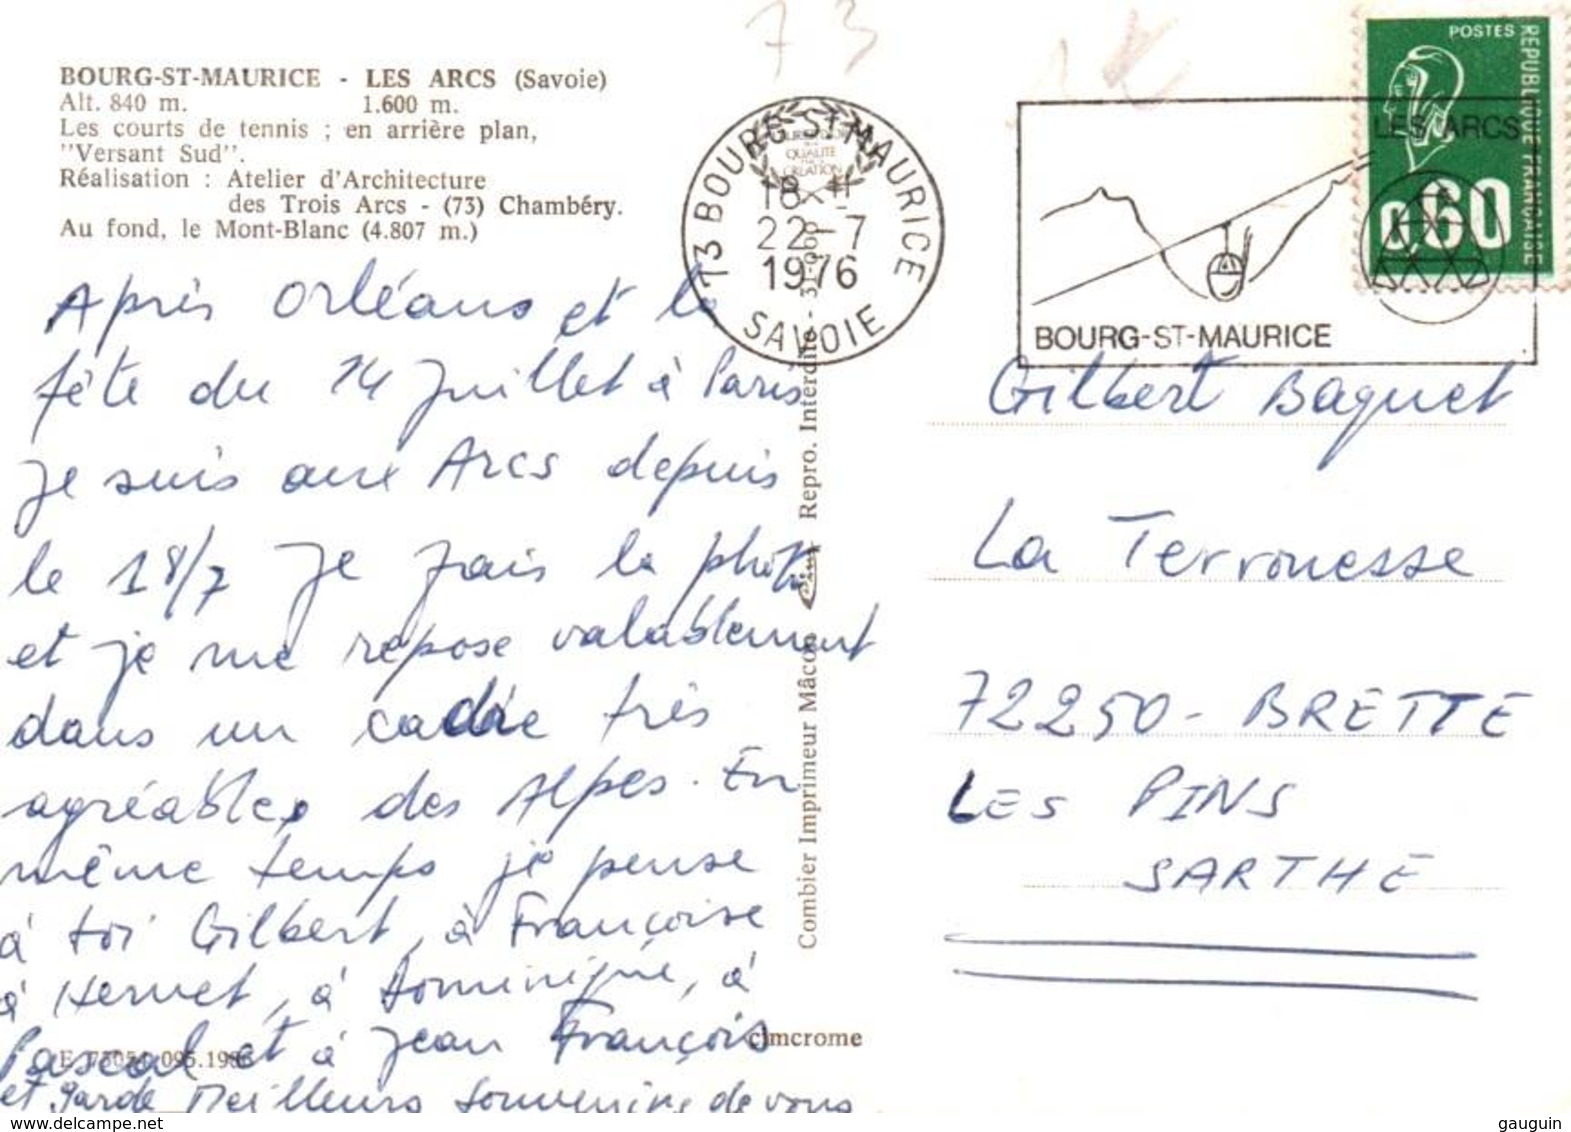 73
BOURG-ST-MAURICE - LES ARCS (Savoie)
Alt. 840 m. 1.600 m.
Les courts de tennis ; en arrière plan,
"Versant Sud".
Réalisation : Atelier d'Architecture
des Trois Arcs - (73) Chambéry.
Au fond, le Mont-Blanc (4.807 m.)
Après Orléans et la
fête du 14 Juillet à Paris
je suis aux Arcs depuis
le 18/7 Je fais la photo
et je me repose valablement
dans un cadre très
agréables des Alpes. En
même temps je pense
à toi Gilbert, à Françoise
à Hervet, à Dominique, à
Pascal et à Jean François
et garde Meilleurs souvenirs de vous
73 BOURG-ST-MAURICE
QUALITE
CREATION
18 H
22-7
1976
SAVOIE
Combier Imprimeur Mâcon
Repro. Interdite
cimcrome
POSTES
REPUBLIQUE FRANÇAISE
0,60
LES ARCS
BOURG-ST-MAURICE
Gilbert Baquet
La Terrouesse
72250 - BRETTE
LES PINS
SARTHE
gauguin